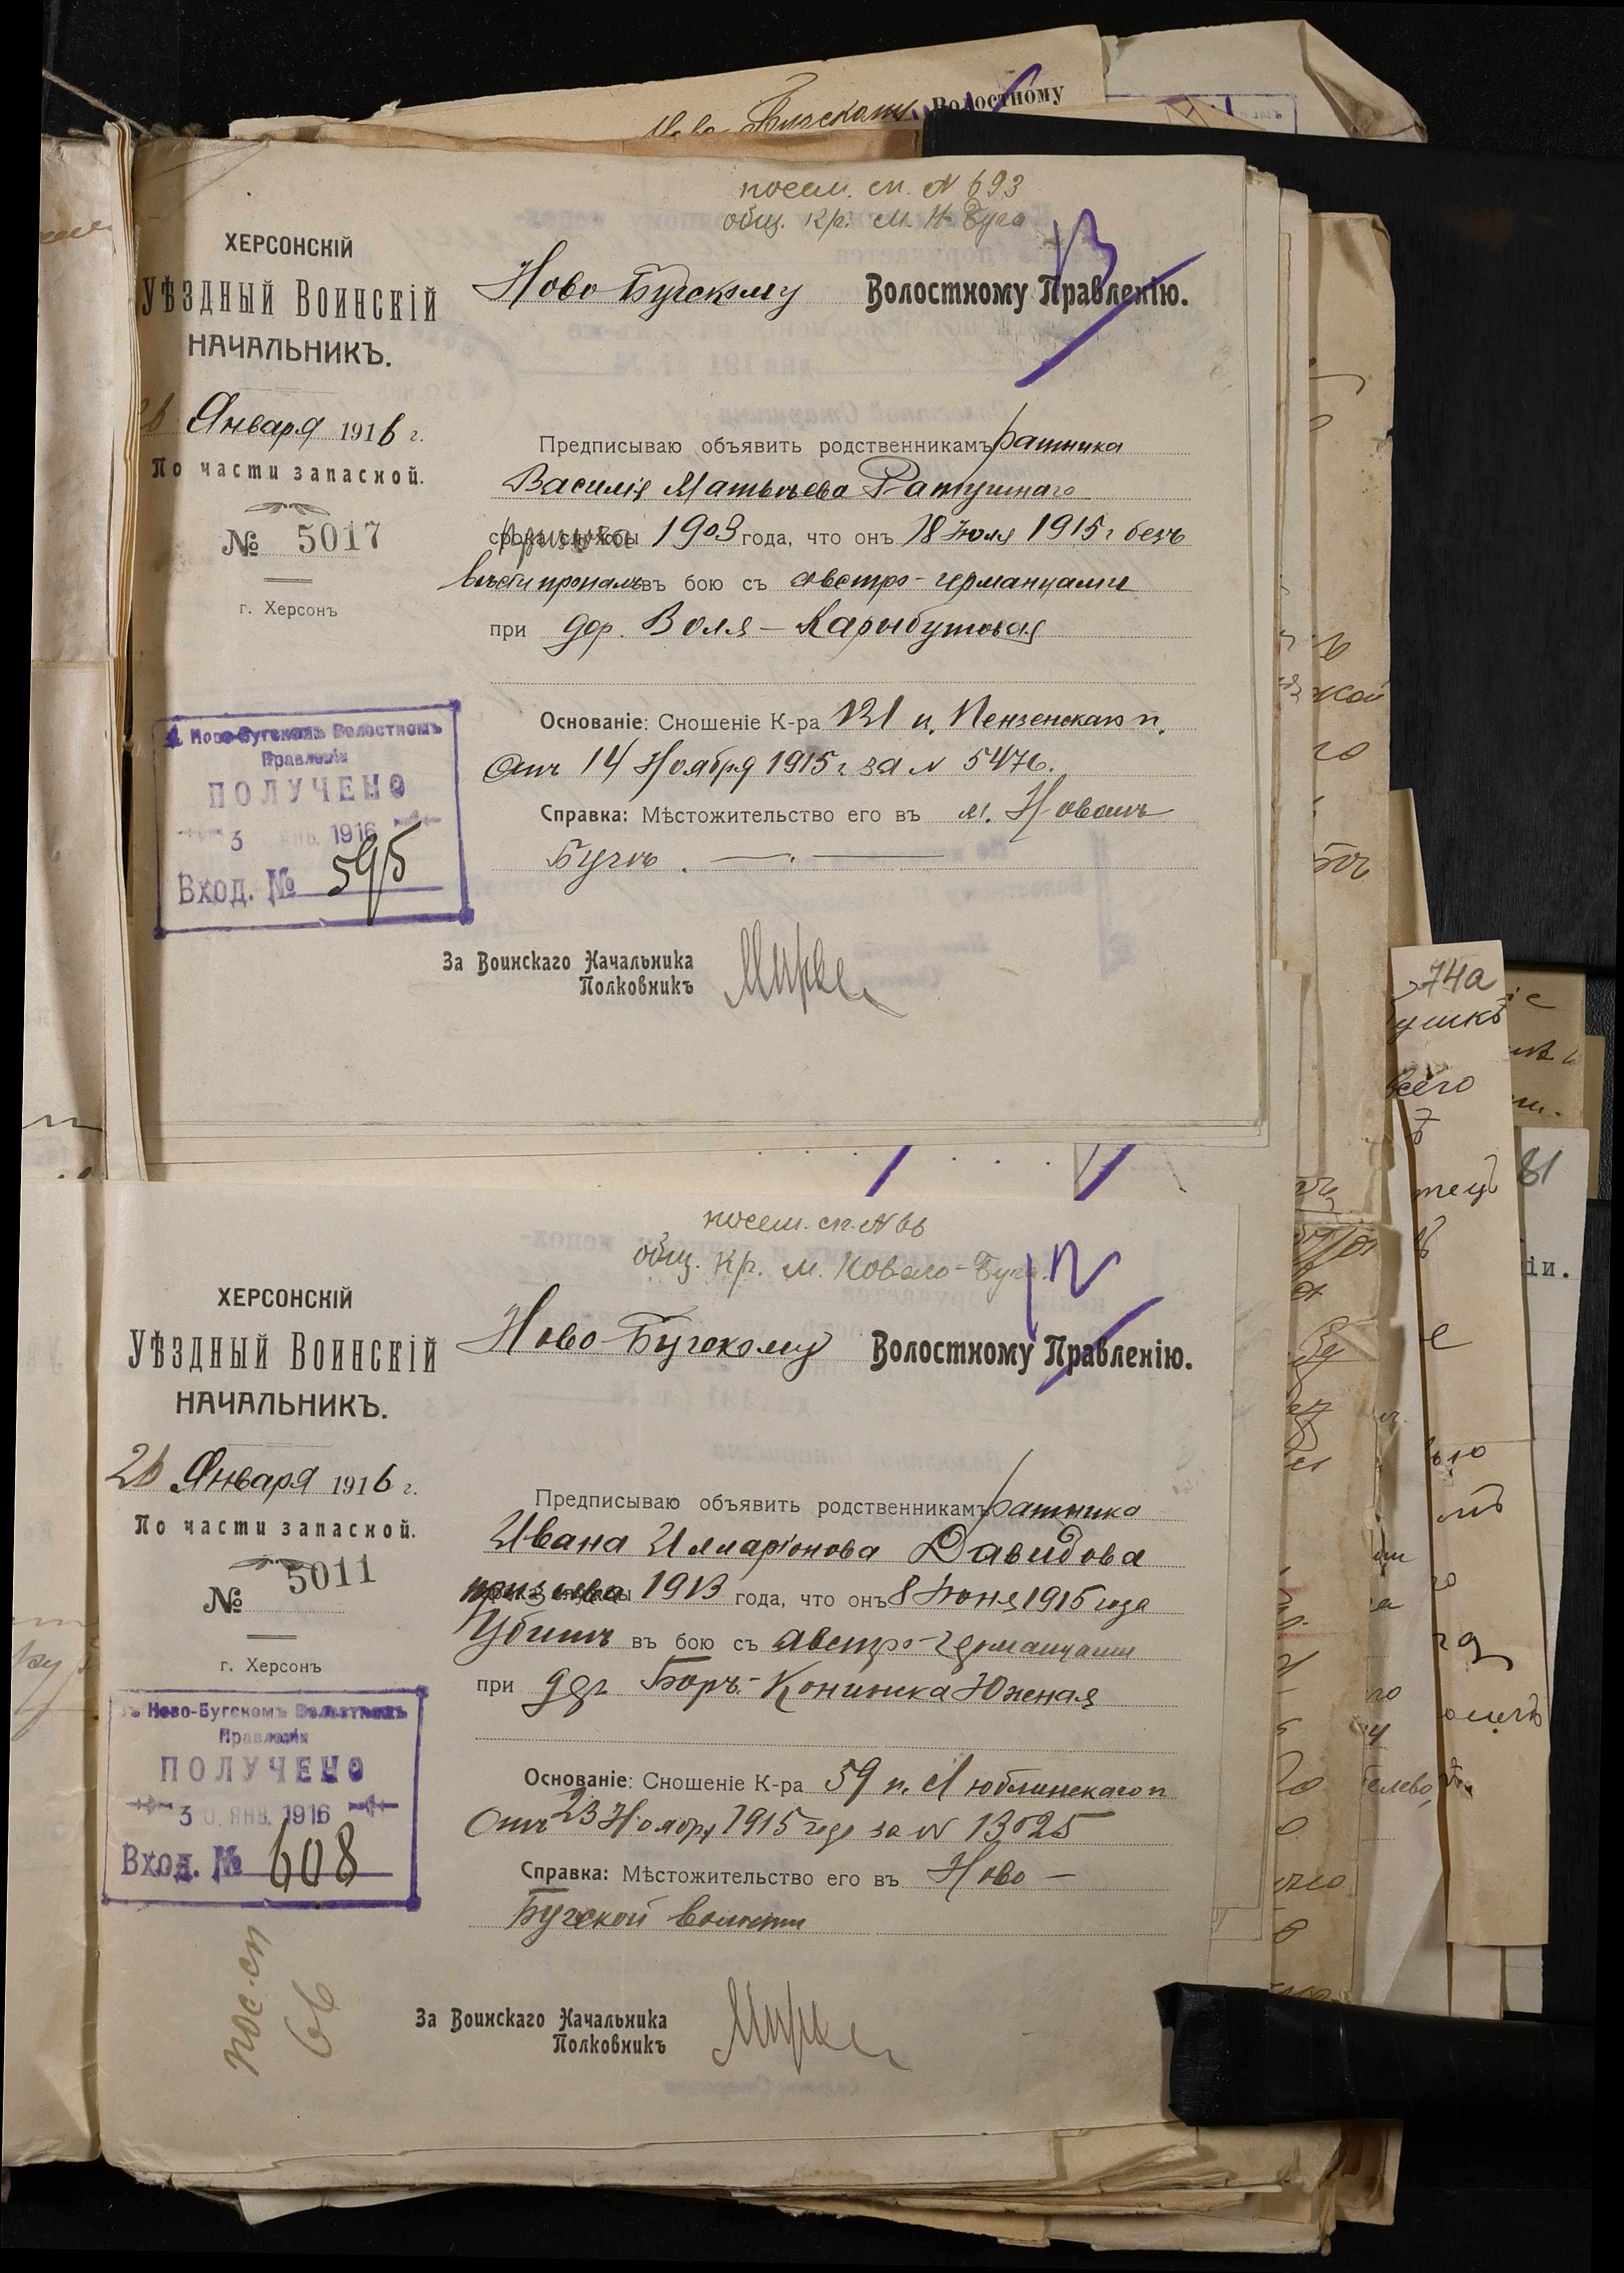 Волостному
посем. сп. № 693
общ. кр. м. Н-Буга
ХЕРСОНСКІЙ
УѢЗДНЫЙ ВОИНСКІЙ
НАЧАЛЬНИКЪ.
Ново-Бугскому Волостному Правленію.
26 Января 1916 г.
По части запасной.
№ 5017
г. Херсонъ
Предписываю объявить родственникамъ ратника
Василія Матвѣева Ратушнаго
призыва 1903 года, что онъ 18 Іюля 1915 г безъ
вѣсти пропалъ въ бою съ австро-германцами
при дер. Воля-Карыбутовая
Основаніе: Сношеніе К-ра 121 п. Пензенскаго п.
Отъ 14 Ноября 1915 г за № 5476.
Справка: Мѣстожительство его въ м. Новомъ
Бугѣ.
Ново-Бугскомъ Волостномъ
Правленіи
ПОЛУЧЕНО
3 янв. 1916
Вход. № 595
За Воинскаго Начальника
Полковникъ
посем. сп. № 66
общ. кр. м. Новаго-Буга.
ХЕРСОНСКІЙ
УѢЗДНЫЙ ВОИНСКІЙ
НАЧАЛЬНИКЪ.
Ново-Бугскому Волостному Правленію.
26 Января 1916 г.
По части запасной.
№ 5011
г. Херсонъ
Предписываю объявить родственникамъ ратника
Ивана Илларіонова Давидова
призыва 1913 года, что онъ 8 Іюня 1915 года
Убитъ въ бою съ австро-германцами
при дер. Боръ-Конинка Южная
Основаніе: Сношеніе К-ра 59 п. Люблинскаго п
Отъ 23 Ноября 1915 года за № 13025
Справка: Мѣстожительство его въ Ново-
Бугской волости
Ново-Бугскомъ Волостномъ
Правленіи
ПОЛУЧЕНО
30 ЯНВ. 1916
Вход. № 608
пос. сп
66
За Воинскаго Начальника
Полковникъ
74а
81